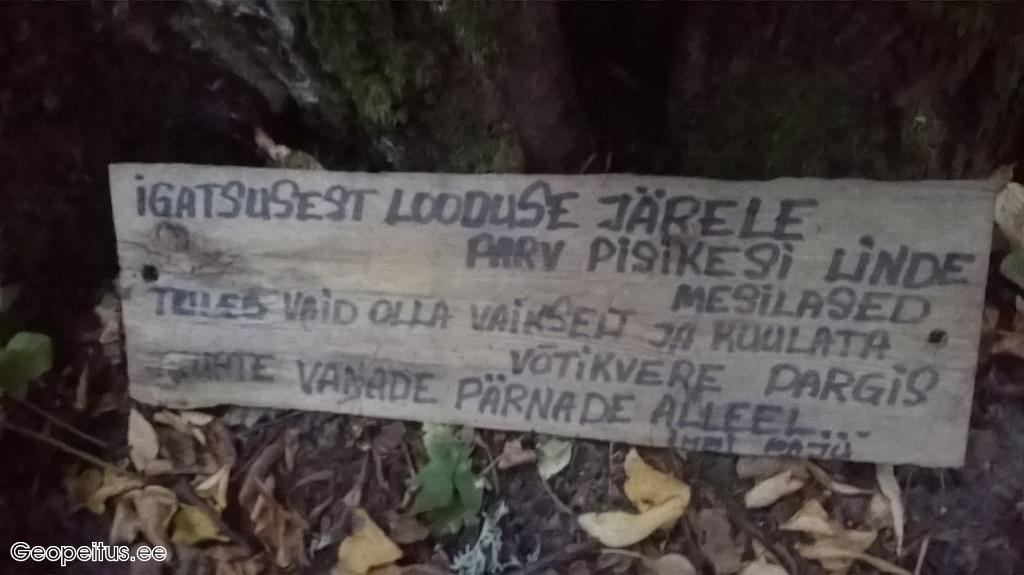 IGATSUSEST LOODUSE JÄRELE
PARV PISIKESI LINDE
MESILASED
TULEB VAID OLLA VAIKSELT JA KUULATA
VÕTIKVERE PARGIS
VANADE PÄRNADE ALLEEL...
Geopeitus.ee